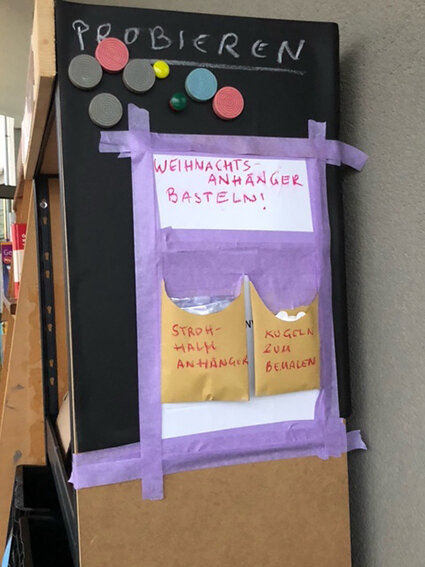 PROBIEREN
WEIHNACHTS-
ANHÄNGER
BASTELN!
STROH-
HALM
ANHÄNGER
KUGELN
ZUM
BEMALEN